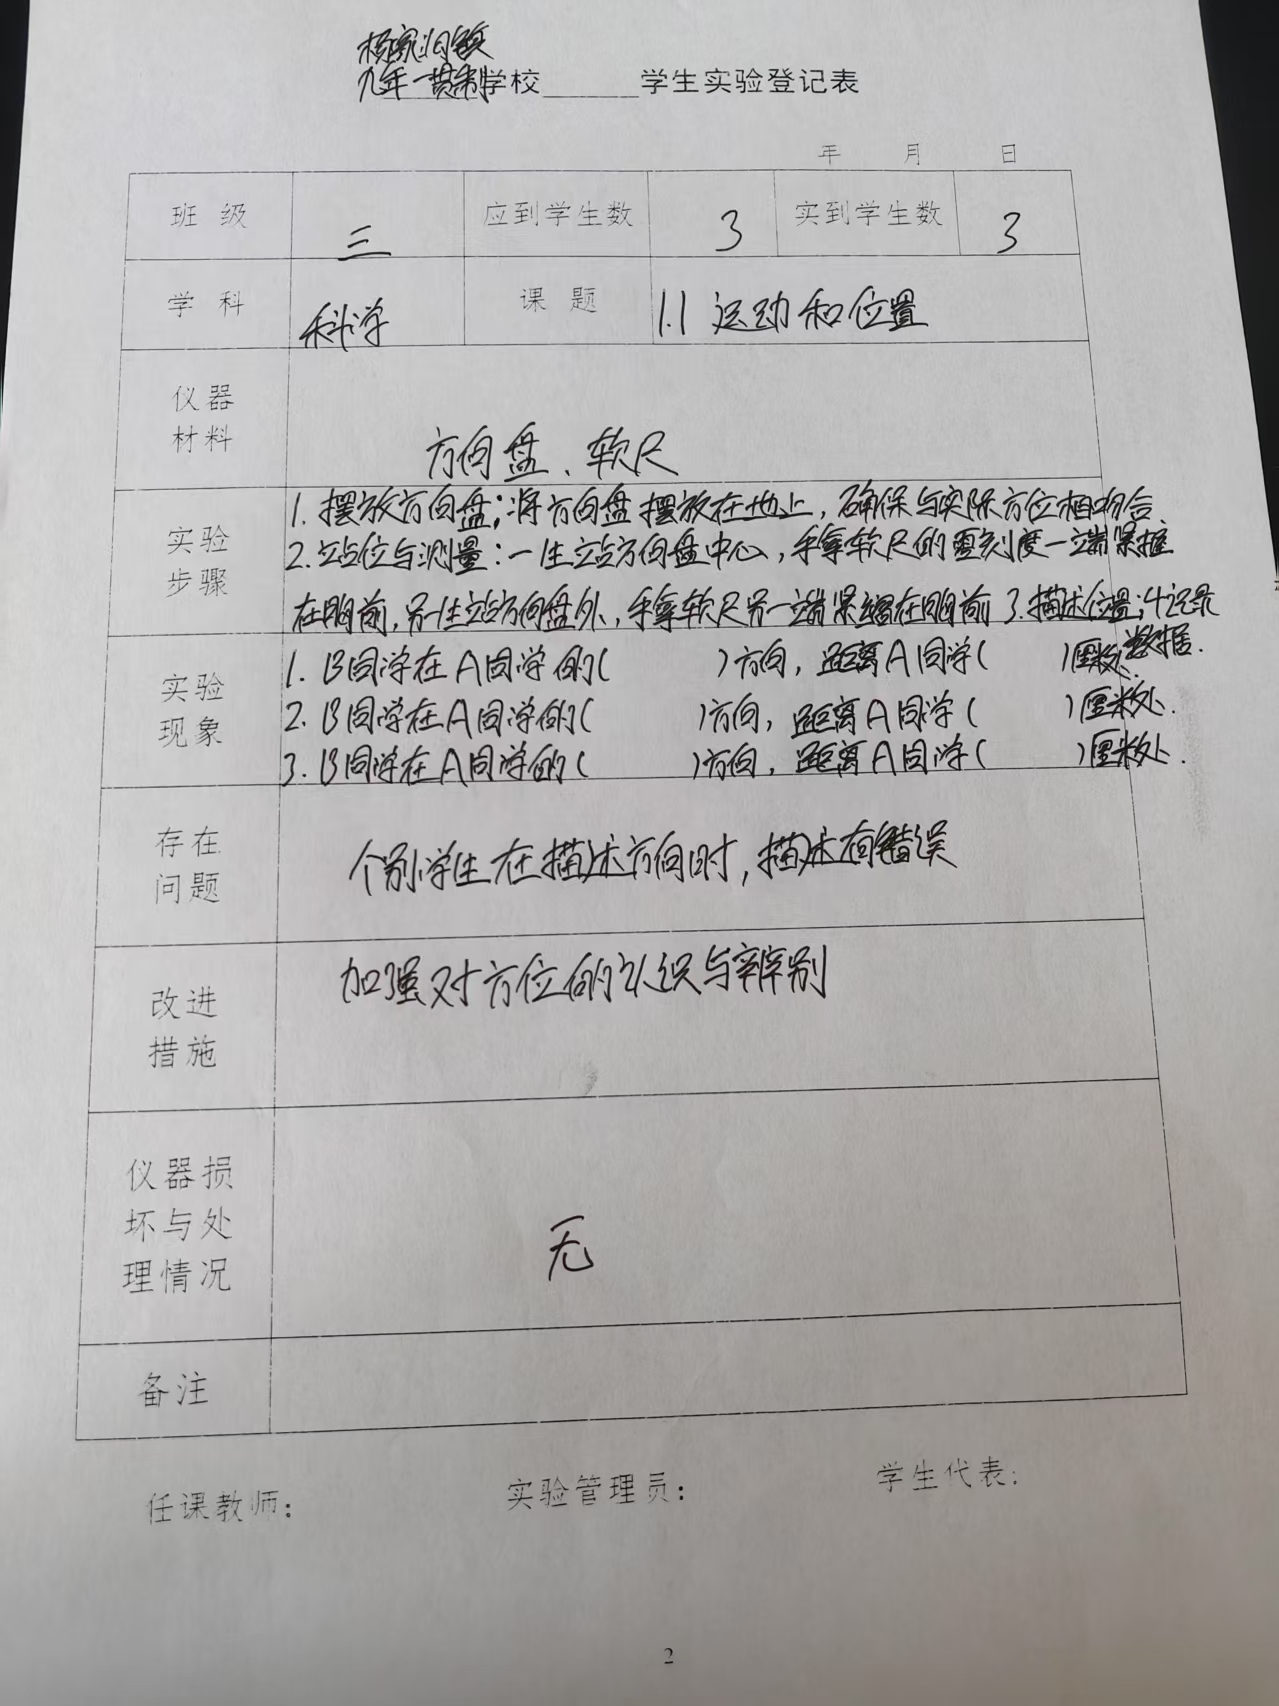 杨家沟镇
九年一贯制学校______学生实验登记表
年 月 日
班 级 三 应到学生数 3 实到学生数 3
学 科 科学 课 题 1.1 运动和位置
仪器
材料
方向盘、软尺
实验
步骤
1. 摆放方向盘;将方向盘摆放在地上,确保与实际方位相吻合
2. 站位与测量:一生站方向盘中心,手拿软尺的零刻度一端紧握
在胸前,另一生站方向盘外,手拿软尺另一端紧绷在胸前 3. 描述位置;4记录
数据.
实验
现象
1. B同学在A同学的( )方向,距离A同学( )厘米处.
2. B同学在A同学的( )方向,距离A同学( )厘米处.
3. B同学在A同学的( )方向,距离A同学( )厘米处.
存在
问题
个别学生在描述方向时,描述有错误
改进
措施
加强对方位的认识与辨别
仪器损
坏与处
理情况
无
备注
任课教师: 实验管理员: 学生代表:
2